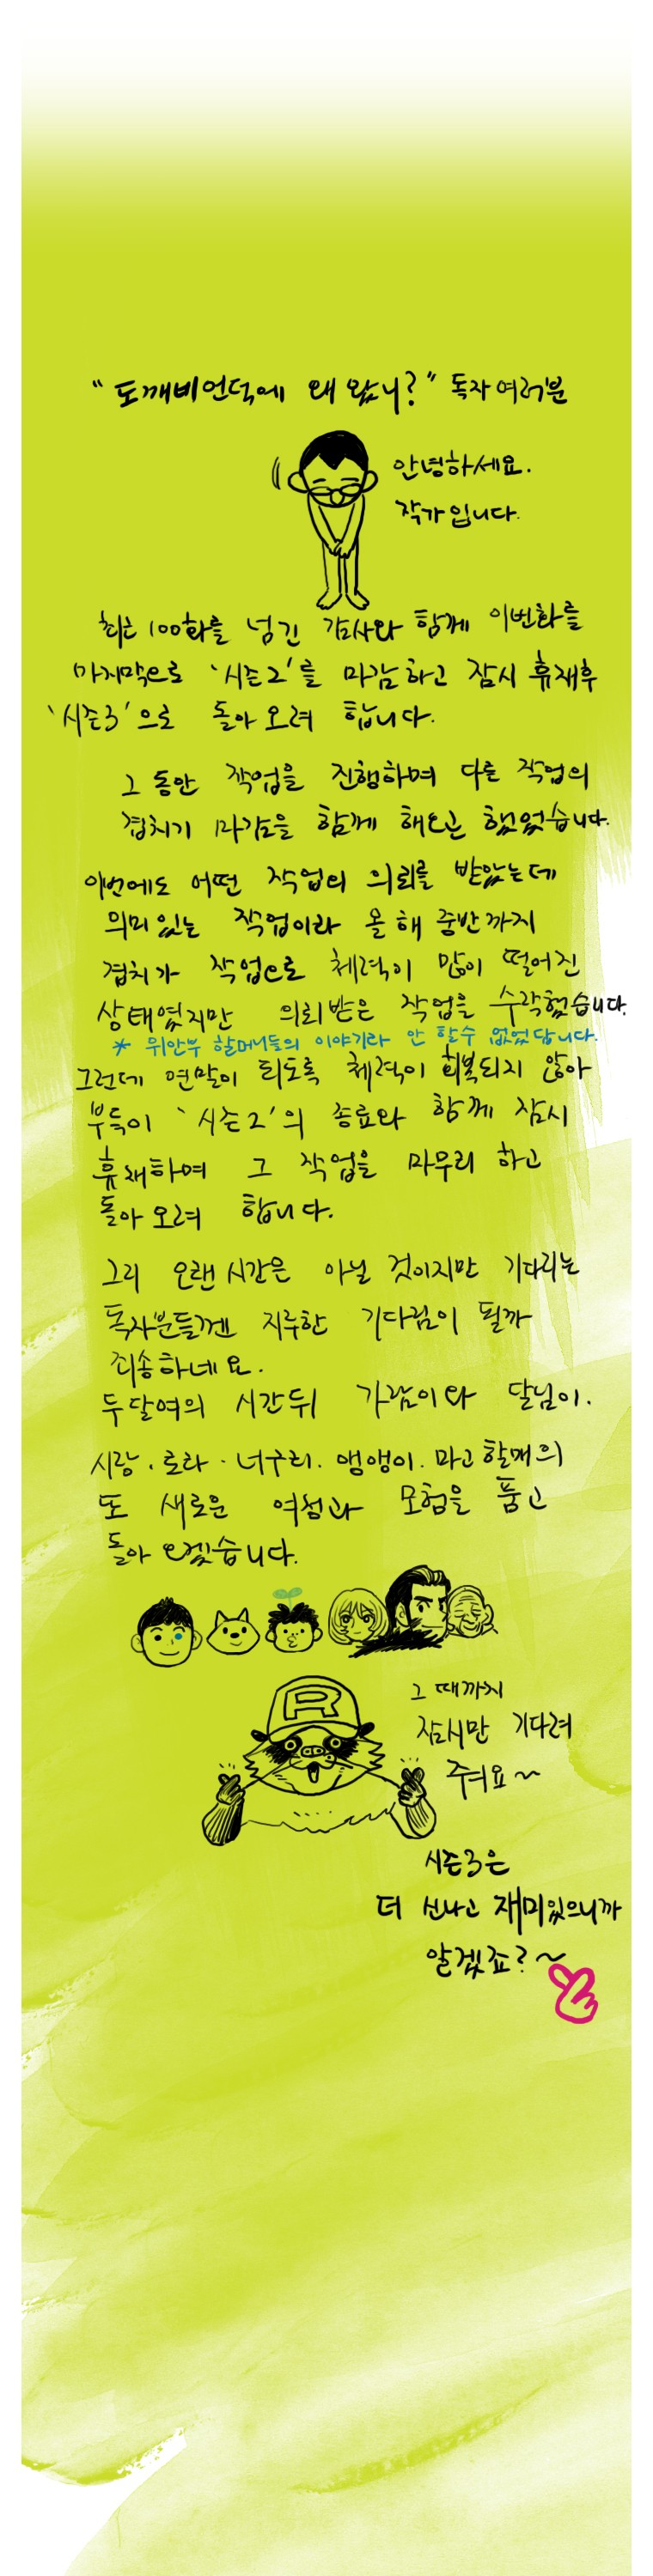 "도깨비언덕에 왜 왔니?" 독자여러분
안녕하세요.
작가입니다.
최근 100화를 넘긴 감사와 함께 이번화를
마지막으로 '시즌2'를 마감하고 잠시 휴재후
'시즌3'으로 돌아 오려 합니다.
그 동안 작업을 진행하며 다른 작업의
겹치기 마감을 함께 해오곤 했었습니다.
이번에도 어떤 작업의 의뢰를 받았는데
의미있는 작업이라 올 해 중반까지
겹치가 작업으로 체력이 많이 떨어진
상태였지만 의뢰받은 작업을 수락했습니다.
* 위안부 할머니들의 이야기라 안 할수 없었답니다.
그런데 연말이 되도록 체력이 회복되지 않아
부득이 '시즌2'의 종료와 함께 잠시
휴재하며 그 작업을 마무리 하고
돌아 오려 합니다.
그리 오랜 시간은 아닐 것이지만 기다리는
독자분들껜 지루한 기다림이 될까
죄송하네요.
두달여의 시간뒤 가람이와 달님이.
시랑·로라·너구리. 앵앵이. 마고할매의
또 새로운 여정과 모험을 품고
돌아 오겠습니다.
R
그 때까지
잠시만 기다려
주여요~
시즌3은
더 신나고 재미있으니까
알겠죠?~